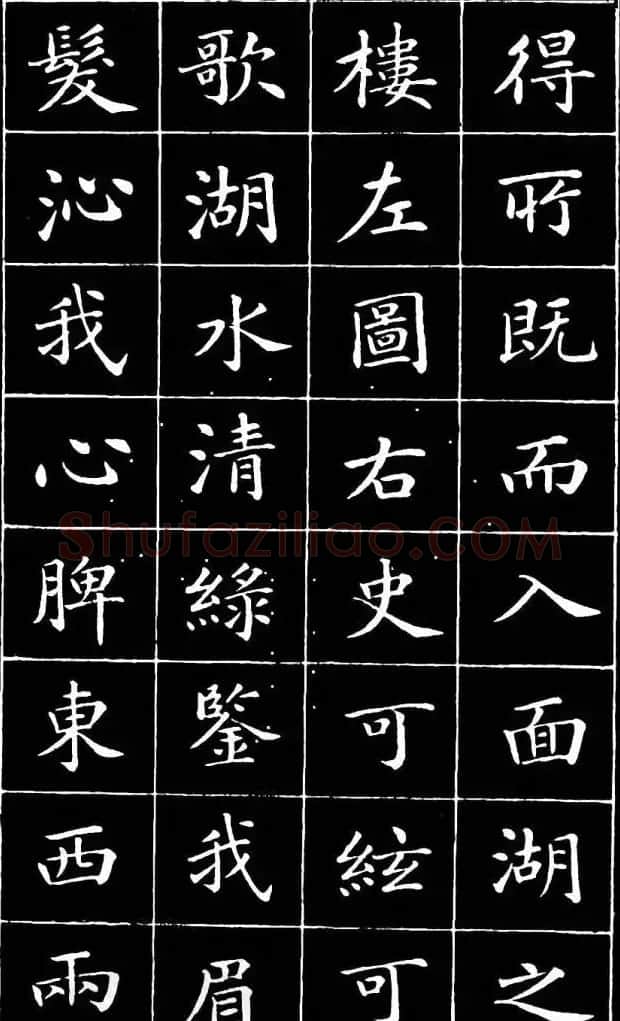 得所既而入面湖之
樓左圖右史可絃可
歌湖水清綠鑒我眉
髮沁我心脾東西兩
Shufaziliao.COM